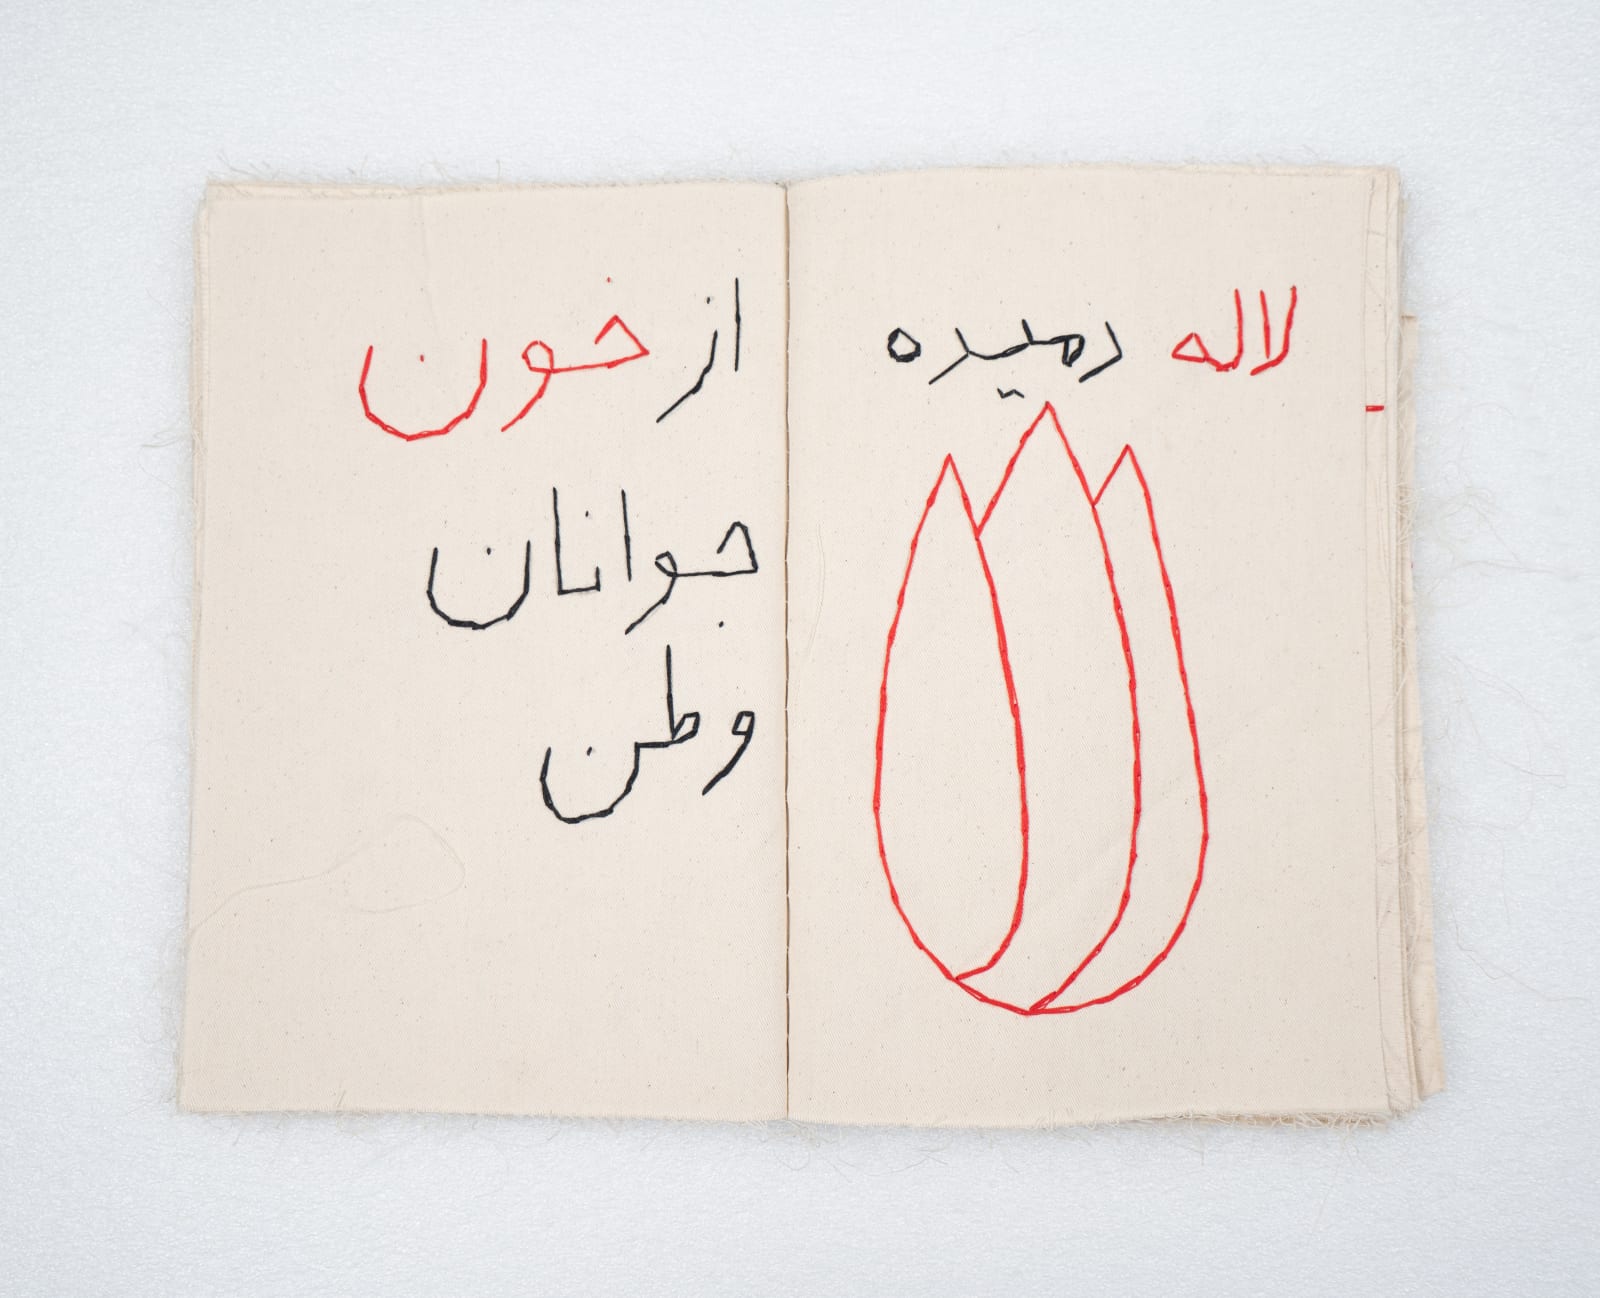 لاله دمیده
از خون
جوانان
وطن